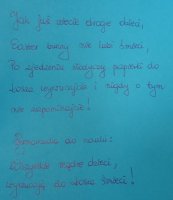 Jak już wiecie drogie dzieci,
Easter bunny nie lubi śmieci,
Po zjedzeniu słodyczy papierki do
kosza wyrzucajcie i nigdy o tym
nie zapominajcie!
do nauki:
Wszystkie mądre dzieci,
wyrzucają do kosza śmieci!